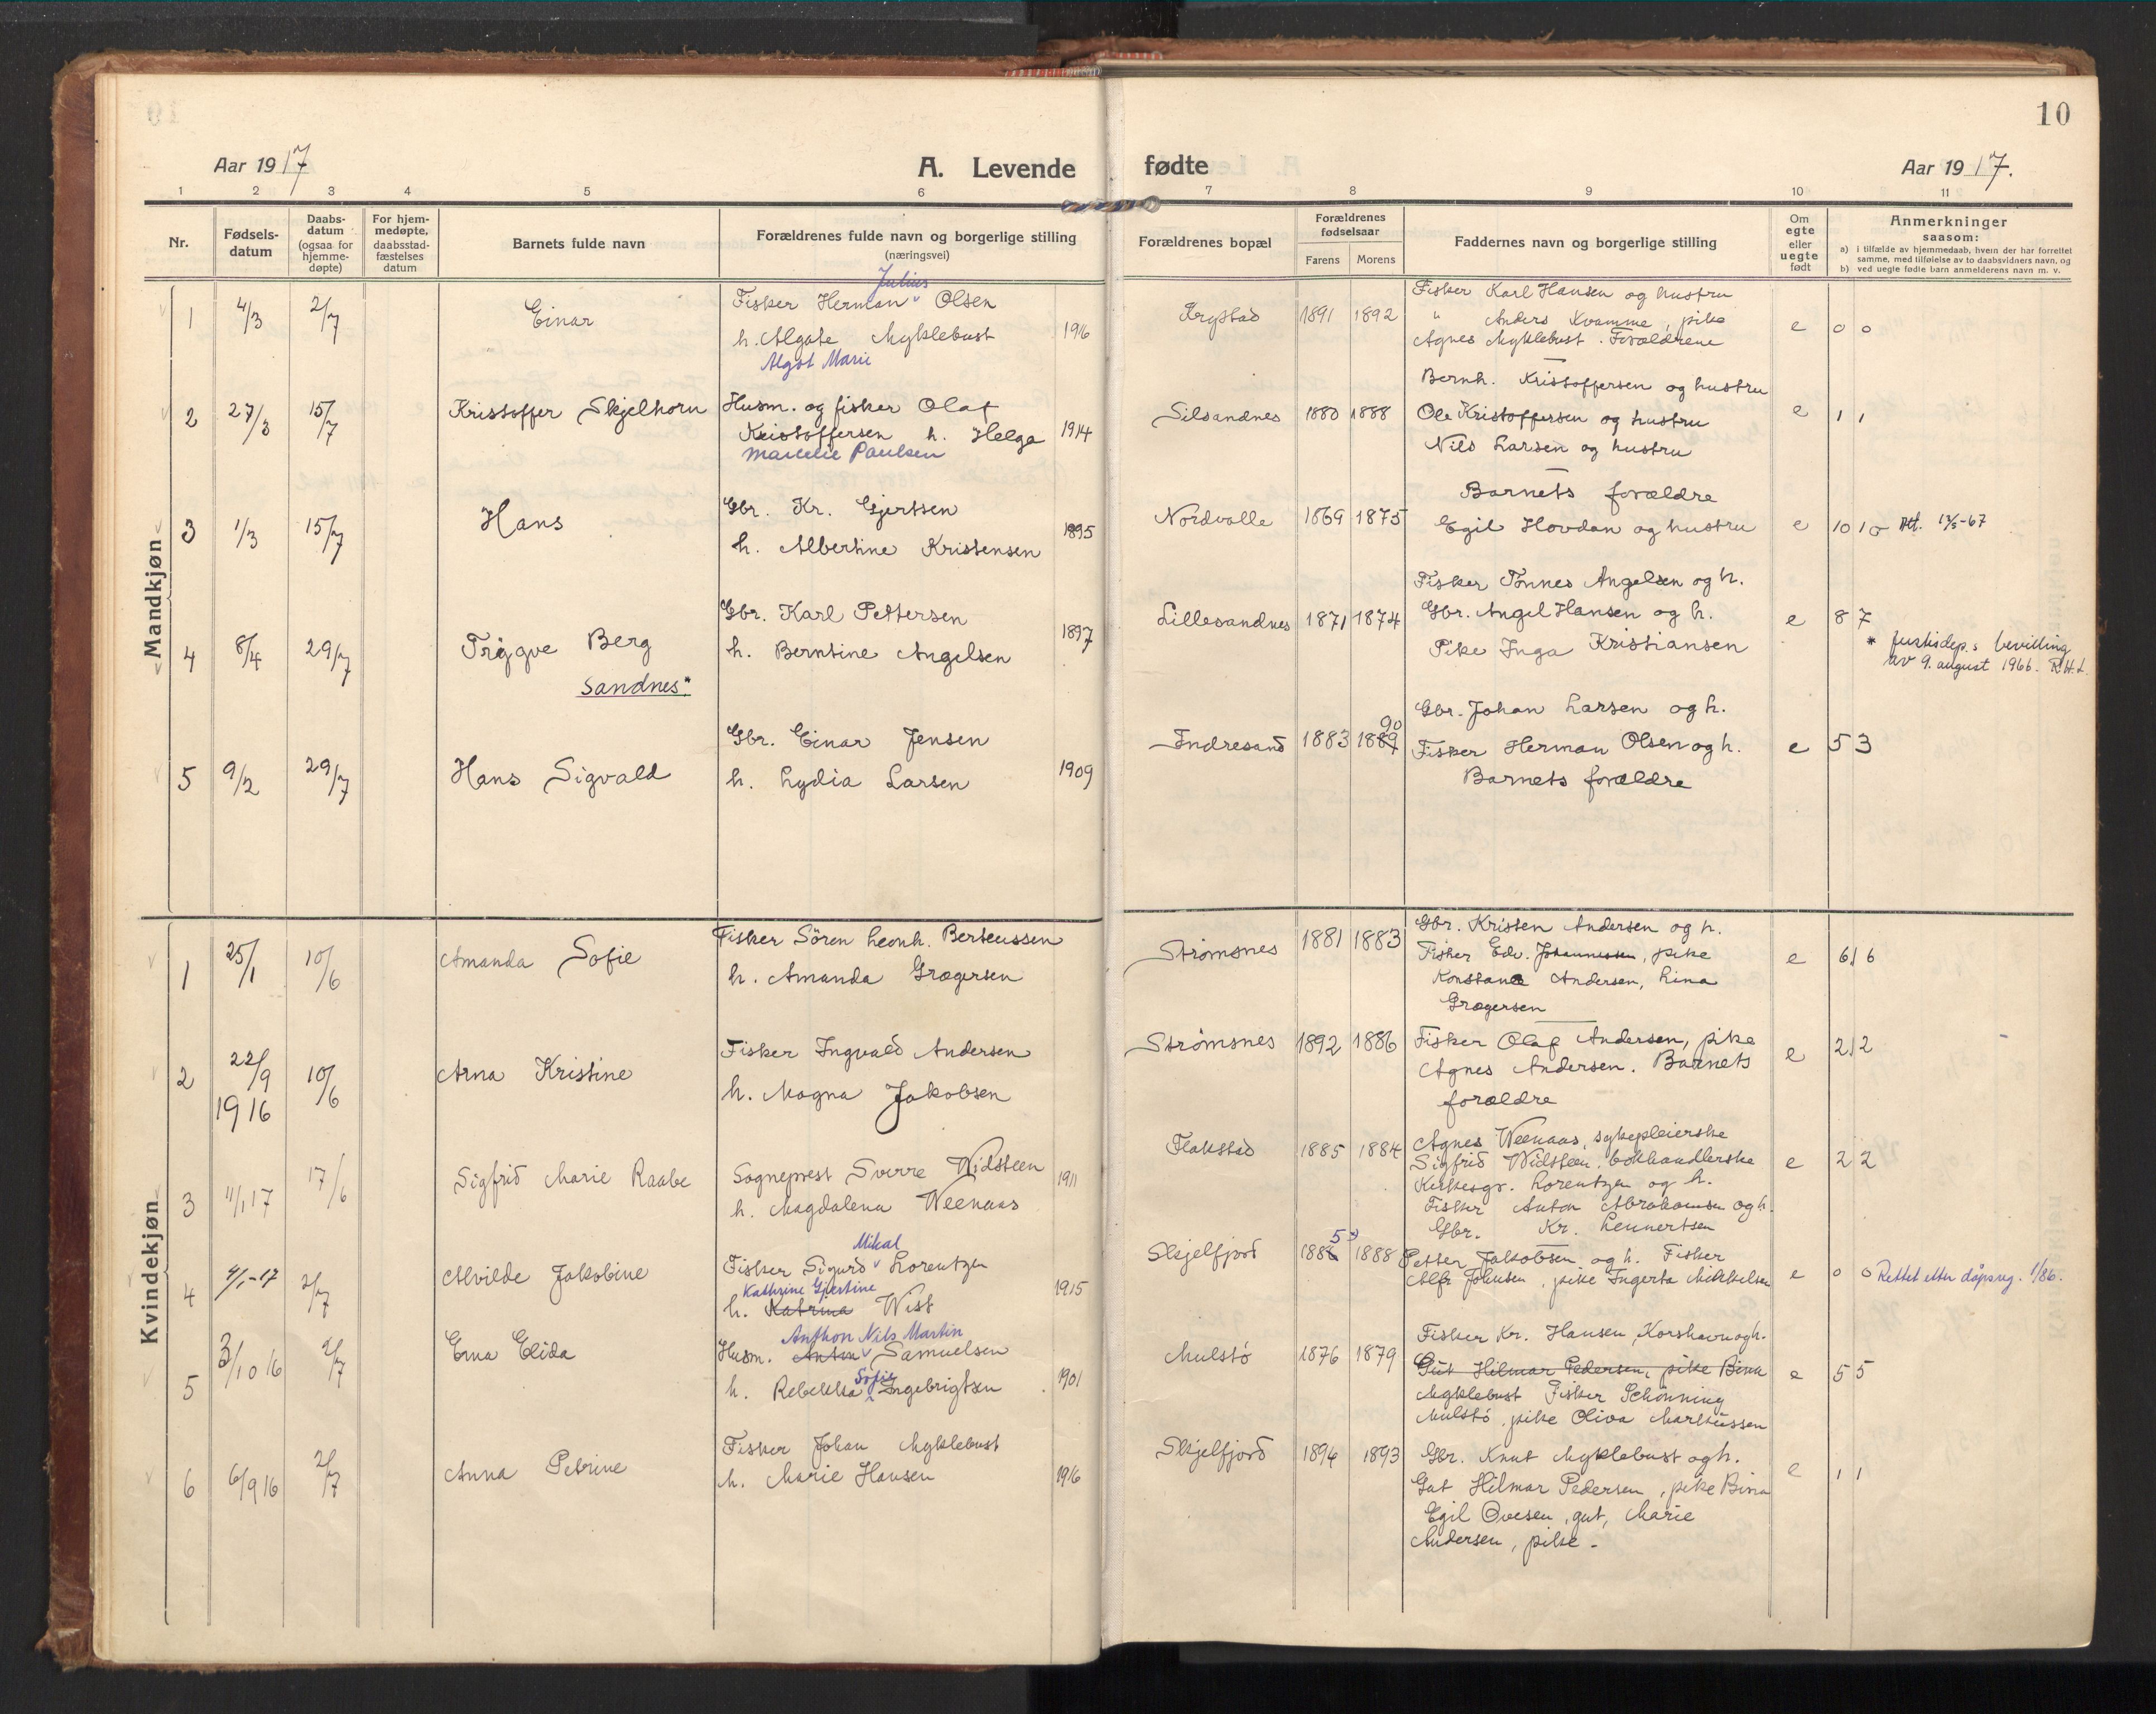 10
Aar 1917
A. Levende
fødte
Aar 1917.
1 2 3 4 5 6 7 8 9 10 11
Nr.
Fødsels-
datum
Daabs-
datum
(ogsaa for
hjemme-
døpte)
For hjem-
medøpte,
daabsstad-
fæstelses
datum
Barnets fulde navn
Forældrenes fulde navn og borgerlige stilling
(næringsvei)
Forældrenes bopæl
Forældrenes
fødselsaar
Farens Morens
Faddernes navn og borgerlige stilling
Om
egte
eller
uegte
født
Anmerkninger
saasom:
a) i tilfælde av hjemmedaab, hvem der har forrettet
samme, med tilføielse av to daabsvidners navn, og
b) ved uegte fødte barn anmelderens navn m. v.
Mandkjøn
1 4/3 2/7 Einar
Julius
Fisker Herman Olsen
h. Algate Myklebust 1916
Algot Marie
Krystad 1891 1892
Fisker Karl Hansen og hustru
" Anders Kvamme, pike
Agnes Myklebust. Forældrene
e 0 0
2 27/3 15/7 Kristoffer Skjelhorn
Husm. og fisker Olaf
Kristoffersen h. Helga 1914
Marcelie Paulsen
Silsandnes 1880 1888
Bernh. Kristoffersen og hustru
Ole Kristoffersen og hustru
Nils Larsen og hustru
e 1 1
3 1/3 15/7 Hans
Gbr. Kr. Gjertsen
h. Albertine Kristensen 1895
Nordvolle 1869 1875
Barnets forældre
Egil Hovdan og hustru
e 10 10 Att. 12/5-67
4 8/4 29/7 Trygve Berg
Sandnes"
Gbr. Karl Pettersen
h. Berntine Angelsen 1897
Lillesandnes 1871 1874
Fisker Tönnes Angelsen og h.
Gbr. Angel Hansen og h.
Pike Inga Kristiansen
e 8 7
* justisdep.s bevilling
av 9. august 1966. R.H.L.
5 9/2 29/7 Hans Sigvald
Gbr. Einar Jensen
h. Lydia Larsen 1909
Indresand 1883 1889
90
Gbr. Johan Larsen og h.
Fisker Herman Olsen og h.
Barnets forældre
e 5 3
Kvindekjøn
1 25/1 10/6 Amanda Sofie
Fisker Sören Leonh. Berteussen
h. Amanda Grægersen
Strömsnes 1881 1883
Gbr. Kristen Andersen og h.
Fisker Edv. Johannessen, pike
Konstance Andersen, Lina
Grægersen
e 6 6
2 22/9 1916 10/6 Arna Kristine
Fisker Ingvald Andersen
h. Magna Jakobsen
Strömsnes 1892 1886
Fisker Olaf Andersen, pike
Agnes Andersen. Barnets
forældre
e 2 2
3 4/1 17 17/6 Sigfrid Marie Raabe
Sogneprest Sverre Widsteen
h. Magdalena Weenaas 1911
Flakstad 1885 1884
Agnes Weenaas, sykepleierske
Sigfrid Widsteen, bokhandlerske
Kirkesgr. Lorentzen og h.
Fisker Anton Abrahamsen og h.
Gbr. Kr. Lennertsen
e 2 2
4 4/1-17 2/7 Alvilde Jakobine
Mikal
Fisker Sigurd Lorentzen
Kathrine Gjertine
h. Katrina Wist 1915
Skjelfjord 1886 1888
5
Petter Jakobsen og h. Fisker
Alfr Johnsen, pike Ingerta Mikkelsen
e 0 0 Rettet etter dåpsreg. 1/86.
5 3/10 16 2/7 Erna Elida
Anthon Nils Martin
Husm. Anton Samuelsen
Sofie
h. Rebekka Ingebrigtsen 1901
Mulstö 1876 1879
Fisker Kr. Hansen, Korshavn og h.
Gut Hilmar Pedersen, pike Bina
Myklebust Fisker Schönning
Mulstö, pike Oliva Markussen
e 5 5
6 6/9 16 2/7 Anna Petrine
Fisker Johan Myklebust
h. Marie Hansen 1916
Skjelfjord 1894 1893
Gbr. Knut Myklebust og h.
Gut Hilmar Pedersen, pike Bina
Egil Ovesen, gut, Marie
Andersen, pike -
e 1 1